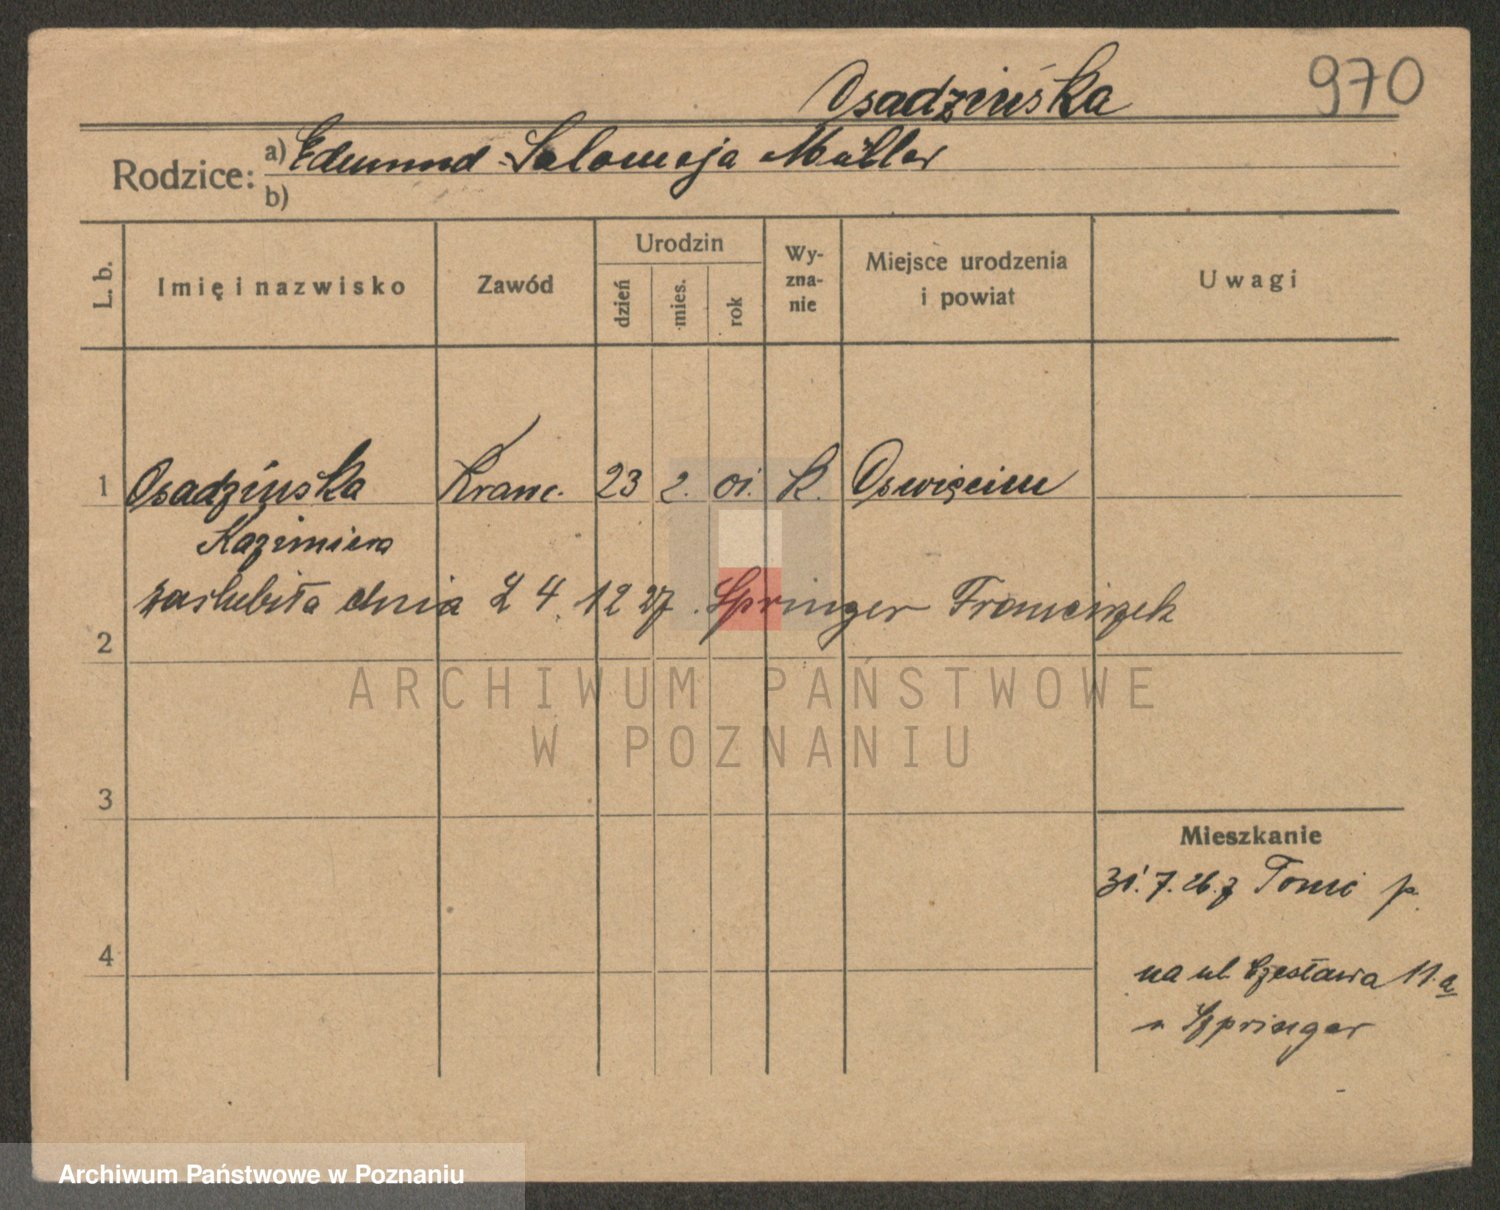 970
Osadzińska
Rodzice: a) Edmund - Salomeja Müller
b)
L. b. Imię i nazwisko Zawód Urodzin dzień mies. rok Wyznanie Miejsce urodzenia i powiat Uwagi
1 Osadzińska Kranc. 23 2. 01. K. Oswięcim
Kazimiera
zaslubiła dnia 24. 12 27. Springer Franciszek
2
ARCHIWUM PAŃSTWOWE
W POZNANIU
3
Mieszkanie
31. 7. 26. z p.
4
na ul. Czesława 11.a
Springer
Archiwum Państwowe w Poznaniu